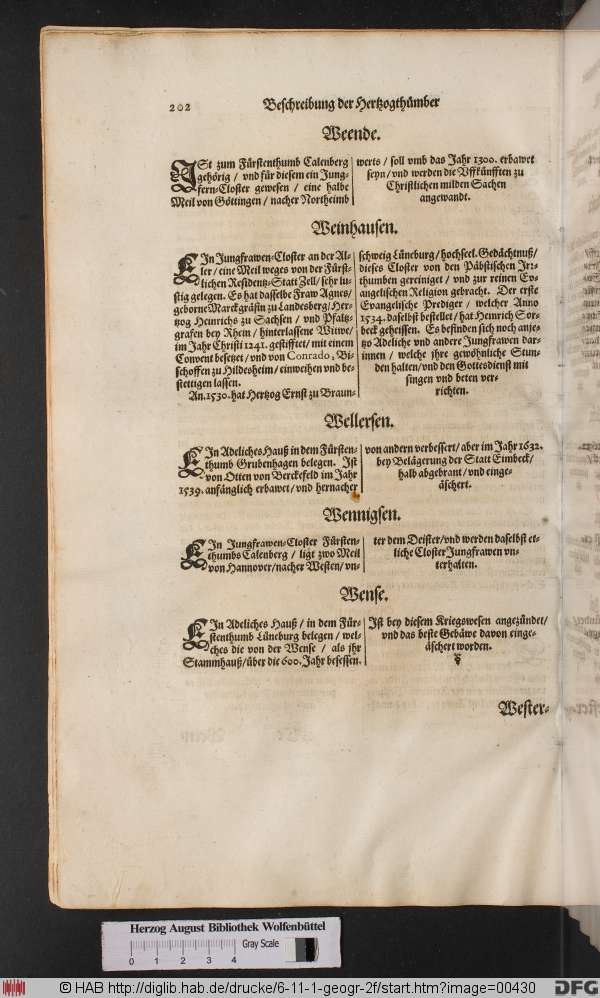 202
Beschreibung der Hertzogthümber
Weende.
ISt zum Fürstenthumb Calenberg
gehörig / und für diesem ein Jung-
fern-Closter gewesen / eine halbe
Meil von Göttingen / nacher Northeimb
werts / soll vmb das Jahr 1300. erbawet
seyn / vnd werden die Vffkünfften zu
Christlichen milden Sachen
angewandt.
Weinhausen.
EIn Jungfrawen-Closter an der Al-
ler / eine Meil weges von der Fürst-
lichen Residentz-Statt Zell / sehr lu-
stig gelegen. Es hat dasselbe Fraw Agnes /
geborne Marckgräfin zu Landesberg / Her-
tzog Heinrichs zu Sachsen / und Pfaltz-
grafen bey Rhein / hinterlassene Witwe /
im Jahr Christi 1241. gestifftet / mit einem
Convent besetzet / vnd von Conrado, Bi-
schoffen zu Hildesheim / einweihen vnd be-
stettigen lassen.
An. 1530. hat Hertzog Ernst zu Braun-
schweig Lüneburg / hochseel. Gedächtnuß /
dieses Closter von den Päbstischen Irr-
thumben gereiniget / vnd zur reinen Ev-
angelischen Religion gebracht. Der erste
Evangelische Prediger / welcher Anno
1534. daselbst bestellet / hat Heinrich Sor-
beck geheissen. Es befinden sich noch anje-
tzo Adeliche vnd andere Jungfrawen dar-
innen / welche jhre gewöhnliche Stun-
den halten / vnd den Gottesdienst mit
singen vnd beten ver-
richten.
Wellersen.
EIn Adeliches Hauß in dem Fürsten-
thumb Grubenhagen belegen. Ist
von Otten von Berckefeld im Jahr
1539. anfänglich erbawet / vnd hernacher
von andern verbessert / aber im Jahr 1632.
bey Belägerung der Statt Eimbeck /
halb abgebrant / vnd einge-
äschert.
Wennigsen.
EIn Jungfrawen-Closter Fürsten-
thumbs Calenberg / ligt zwo Meil
von Hannover / nacher Westen / vn-
ter dem Deister / vnd werden daselbst et-
liche Closter Jungfrawen vn-
terhalten.
Wense.
EIn Adeliches Hauß / in dem Für-
stenthumb Lüneburg belegen / wel-
ches die von der Wense / als jhr
Stammhauß / über die 600. Jahr besessen.
Ist bey diesem Kriegswesen angezündet /
vnd das beste Gebäwe davon einge-
äschert worden.
Wester-
Herzog August Bibliothek Wolfenbüttel
0 1 2 3 4 Gray Scale
© HAB http://diglib.hab.de/drucke/6-11-1-geogr-2f/start.htm?image=00430
DFG